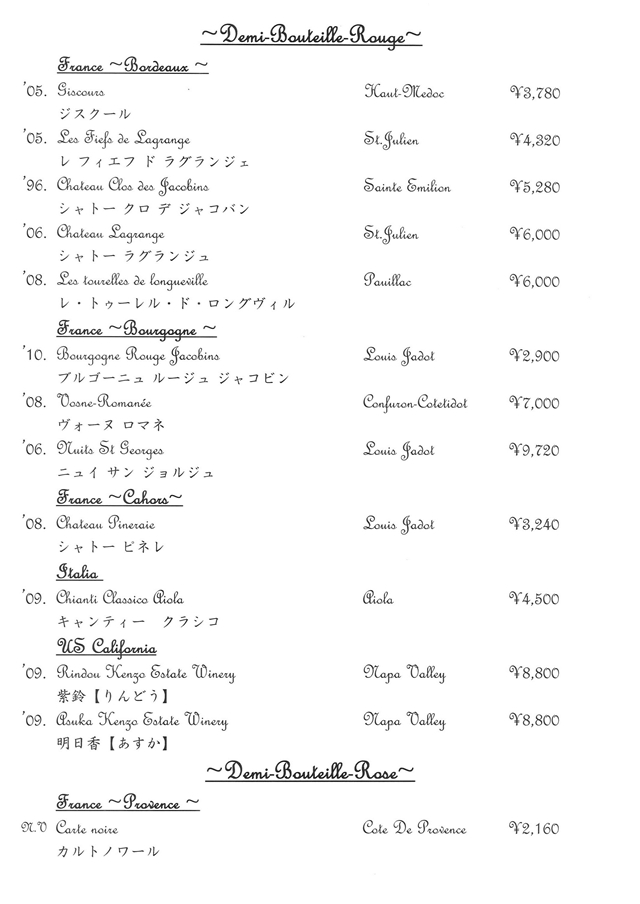 ～Demi-Bouteille-Rouge～
France ～Bordeaux ～
'05. Giscours Haut-Medoc ¥3,780
ジスクール
'05. Les Fiefs de Lagrange St.Julien ¥4,320
レ フィエフ ド ラグランジェ
'96. Chateau Clos des Jacobins Sainte Emilion ¥5,280
シャトー クロ デ ジャコバン
'06. Chateau Lagrange St.Julien ¥6,000
シャトー ラグランジュ
'08. Les tourelles de longueville Pauillac ¥6,000
レ・トゥーレル・ド・ロングヴィル
France ～Bourgogne ～
'10. Bourgogne Rouge Jacobins Louis Jadot ¥2,900
ブルゴーニュ ルージュ ジャコビン
'08. Vosne-Romanée Confuron-Cotetidot ¥7,000
ヴォーヌ ロマネ
'06. Nuits St Georges Louis Jadot ¥9,720
ニュイ サン ジョルジュ
France ～Cahors～
'08. Chateau Pineraie Louis Jadot ¥3,240
シャトー ピネレ
Italia
'09. Chianti Classico Aiola Aiola ¥4,500
キャンティー　クラシコ
US California
'09. Rindou Kenzo Estate Winery Napa Valley ¥8,800
紫鈴【りんどう】
'09. Asuka Kenzo Estate Winery Napa Valley ¥8,800
明日香【あすか】
～Demi-Bouteille-Rose～
France ～Provence ～
N.V Carte noire Cote De Provence ¥2,160
カルトノワール